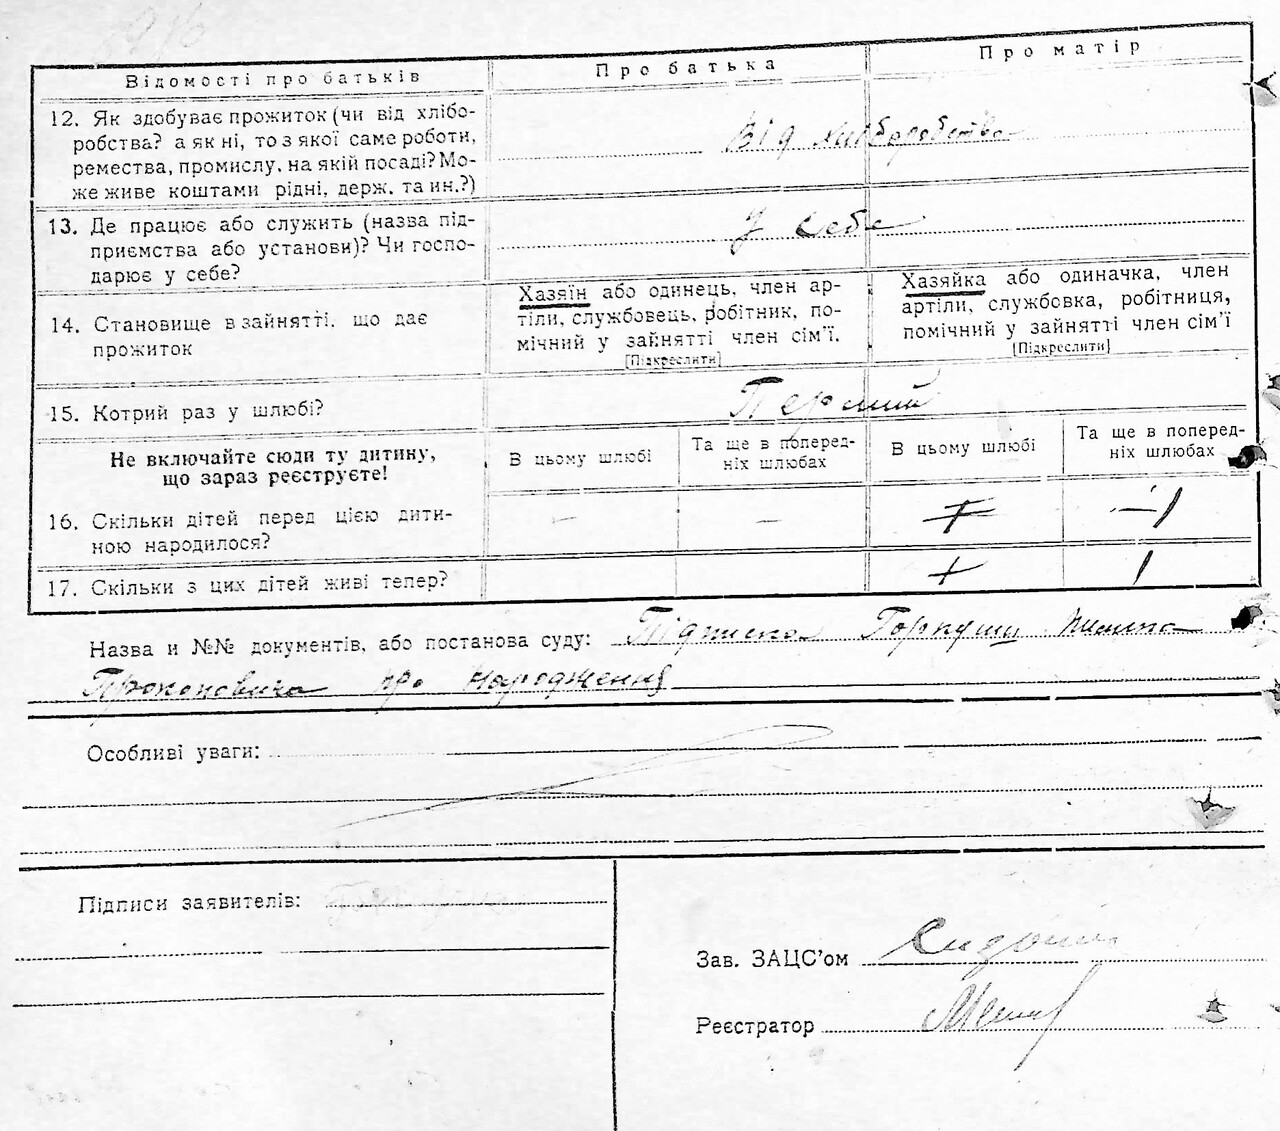 Відомості про батьків
Про батька
Про матір
12. Як здобуває прожиток (чи від хлібо-
робства? а як ні, то з якої саме роботи,
ремества, промислу, на якій посаді? Мо-
же живе коштами рідні, держ. та ин.?)
Від хліборобства
13. Де працює або служить (назва під-
приємства або установи)? Чи госпо-
дарює у себе?
У себе
14. Становище в зайнятті, що дає
прожиток
Хазяїн або одинець, член ар-
тіли, службовець, робітник, по-
мічний у зайнятті член сім'ї.
[Підкреслити]
Хазяйка або одиначка, член
артіли, службовка, робітниця,
помічний у зайнятті член сім'ї
[Підкреслити]
15. Котрий раз у шлюбі?
Перший
Не включайте сюди ту дитину,
що зараз реєструєте!
В цьому шлюбі
Та ще в поперед-
ніх шлюбах
В цьому шлюбі
Та ще в поперед-
ніх шлюбах
16. Скільки дітей перед цією дити-
ною народилося?
– –
17. Скільки з цих дітей живі тепер?
Назва и №№ документів, або постанова суду: Підписка Горкуши
Прокоповича про народження
Особливі уваги:
Підписи заявителів:
Зав. ЗАЦС'ом
Реєстратор